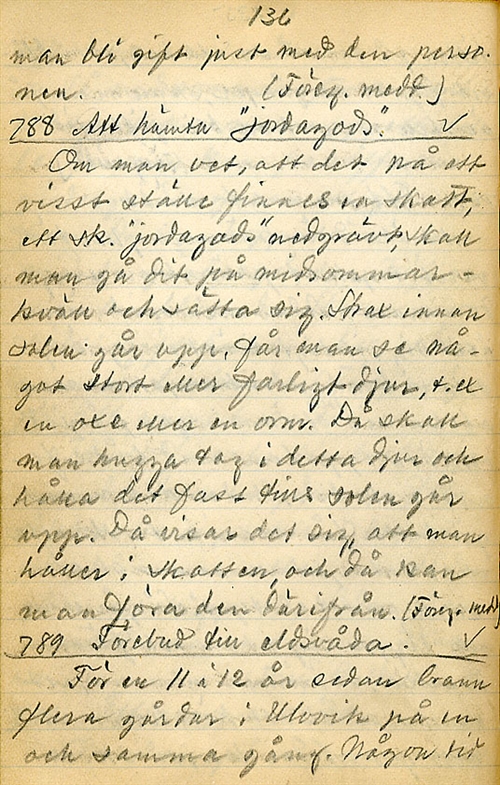 136
man bli gift just med den perso-
nen. (Föreg. medd.)
788 Att hämta "jordagods". ✓
Om man vet, att det på ett
visst ställe finnes en skatt,
ett sk. "jordagods" nedgrävt, skall
man gå dit på midsommar-
kväll och sätta sig. Strax innan
solen går opp, får man se nå-
got stort eller farligt djur, t. ex
en oxe eller en orm. Då skall
man hugga tag i detta djur och
hålla det fast tills solen går
opp. Då visar det sig, att man
håller i skatten, och då kan
man föra den därifrån. (Föreg. medd)
789 Förebud till eldsvåda. ✓
För en 11 à 12 år sedan brann
flera gårdar i Ulvvik på en
och samma gång. Någon tid